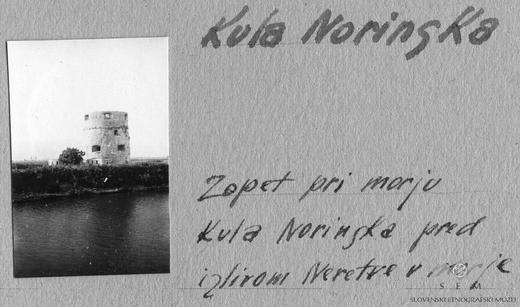 Kula Noringka
Zopet pri morju
Kula Noringka pred
izlirom Neretve v morje
SEM
SLOVENSKI ETNOGRAFSKI MUZEJ